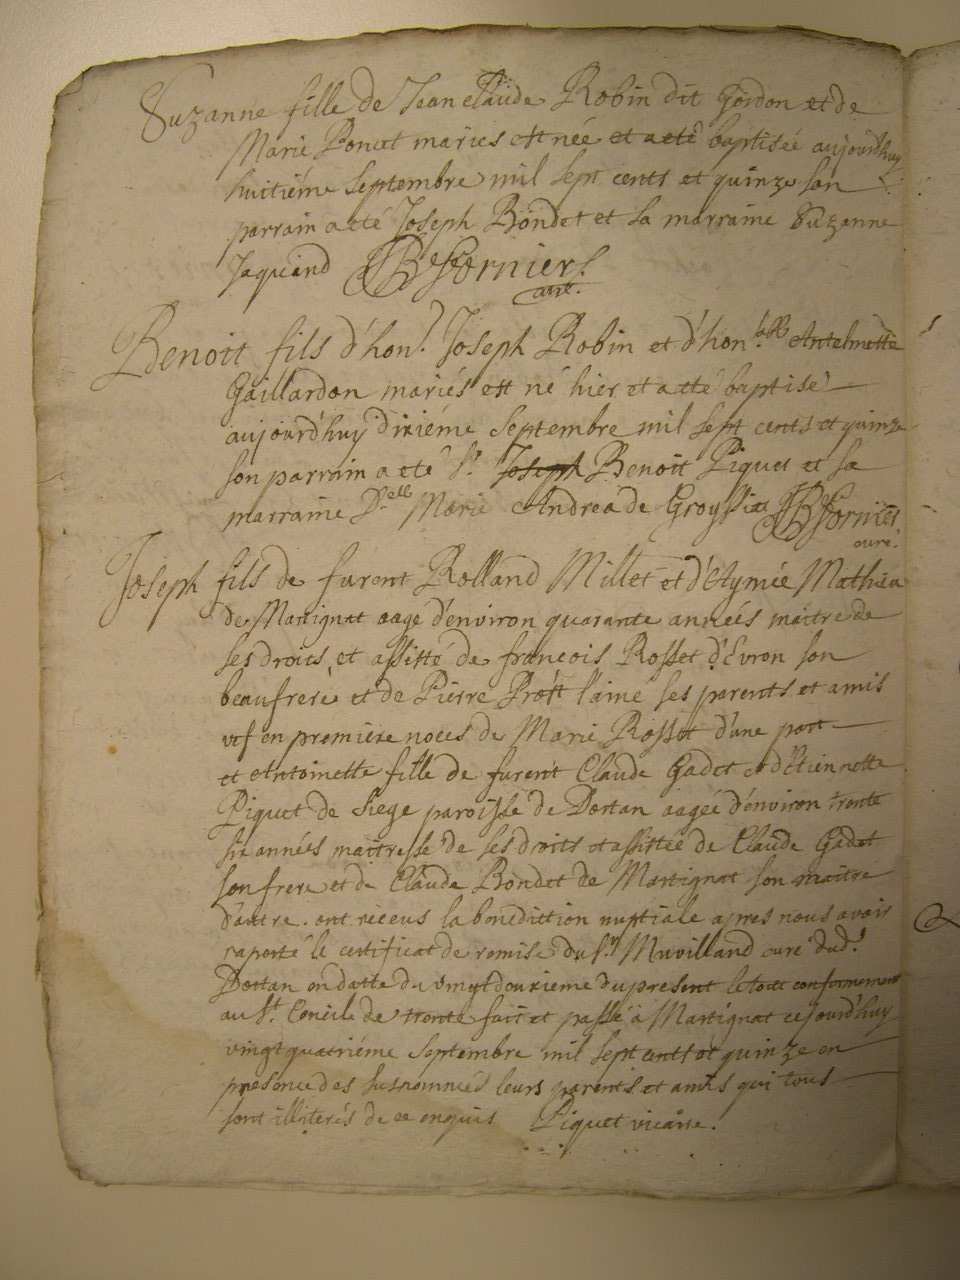 Suzanne fille de Jean claude Robin dit Gordon et de
Marie Poncet mariés est née et a eté baptisée aujourd'huy
huitiéme Septembre mil sept cents et quinze son
parrain a eté Joseph Bondet et sa marraine Suzanne
Jaquand curé.
Benoit fils d'hon.r Joseph Robin et d'hon.ble Antelmette
Gaillardon mariés est né hier et a eté baptisé
aujourd'huy dixiéme Septembre mil sept cents et quinze
son parrain a eté Sr. Joseph Benoit Piquet et sa
marraine D.elle Marie Andrea de Groyssia
curé.
Joseph fils de furent Rolland Millet et d'Etymée Mathieu
de Martignat aagé d'environ quarante années maitre de
ses droits et assisté de francois Rosset d'Evron son
beaufrere et de Pierre Prost l'ainé ses parents et amis
vef en premiere noces de Marie Rosset d'une part
et Antoinette fille de furent Claude Gadet et d'Etiennette
Piquet de Siege paroisse de Dortan aagée d'environ trente
six années maitresse de ses droits et assistée de Claude Gadet
son frere et de Claude Bondet de Martignat son maitre
d'autre. ont receus la benediction nuptiale apres nous avoir
raporté le certificat de remise du Sr. Muvilland curé dud.t
Dortan en datte du vingt deuxieme du present le tout conformement
au St. Concile de trente fait et passé à Martignat cejourd'huy
vingt quatriéme Septembre mil sept cents et quinze en
presence des susnommés leurs parents et amis qui tous
sont illiterés de ce enquis Piquet vicaire.